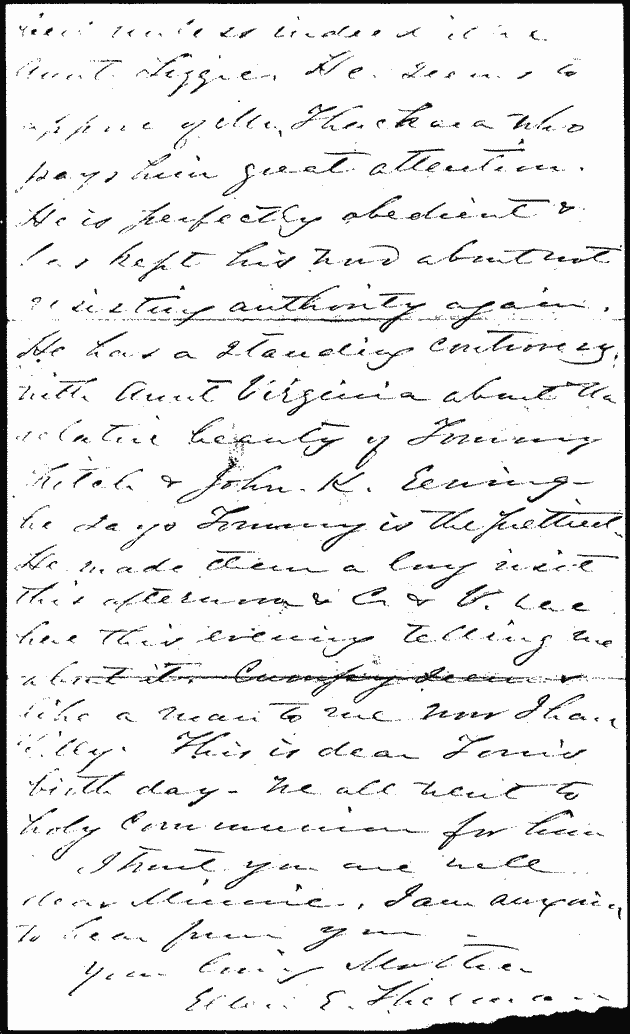 unless indeed it be
Aunt Lizzie. He seems to
approve of Mr. Thackara who
pays him great attention.
He is perfectly obedient &
has kept his word about not
resisting authority again.
He has a standing controversy
with Aunt Virginia about the
relative beauty of Tommy
Fitch & John K. Ewing -
he says Tommy is the prettiest.
He made them a long visit
this afternoon & C. & V. were
here this evening telling me
about it. Cumpy seems
like a man to me now I have
This is dear Tom's
birth day - We all went to
holy Communion for him
I trust you are well
dear Minnie. I am anxious
to hear from you -
Your loving Mother
Ellen E. Sherman